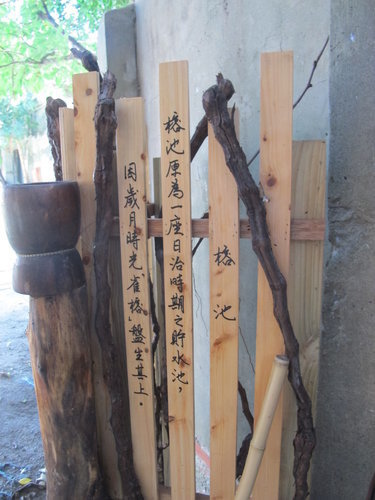 榕池
榕池原為一座日治時期之貯水池，
因歲月時光，「雀榕」盤生其上。